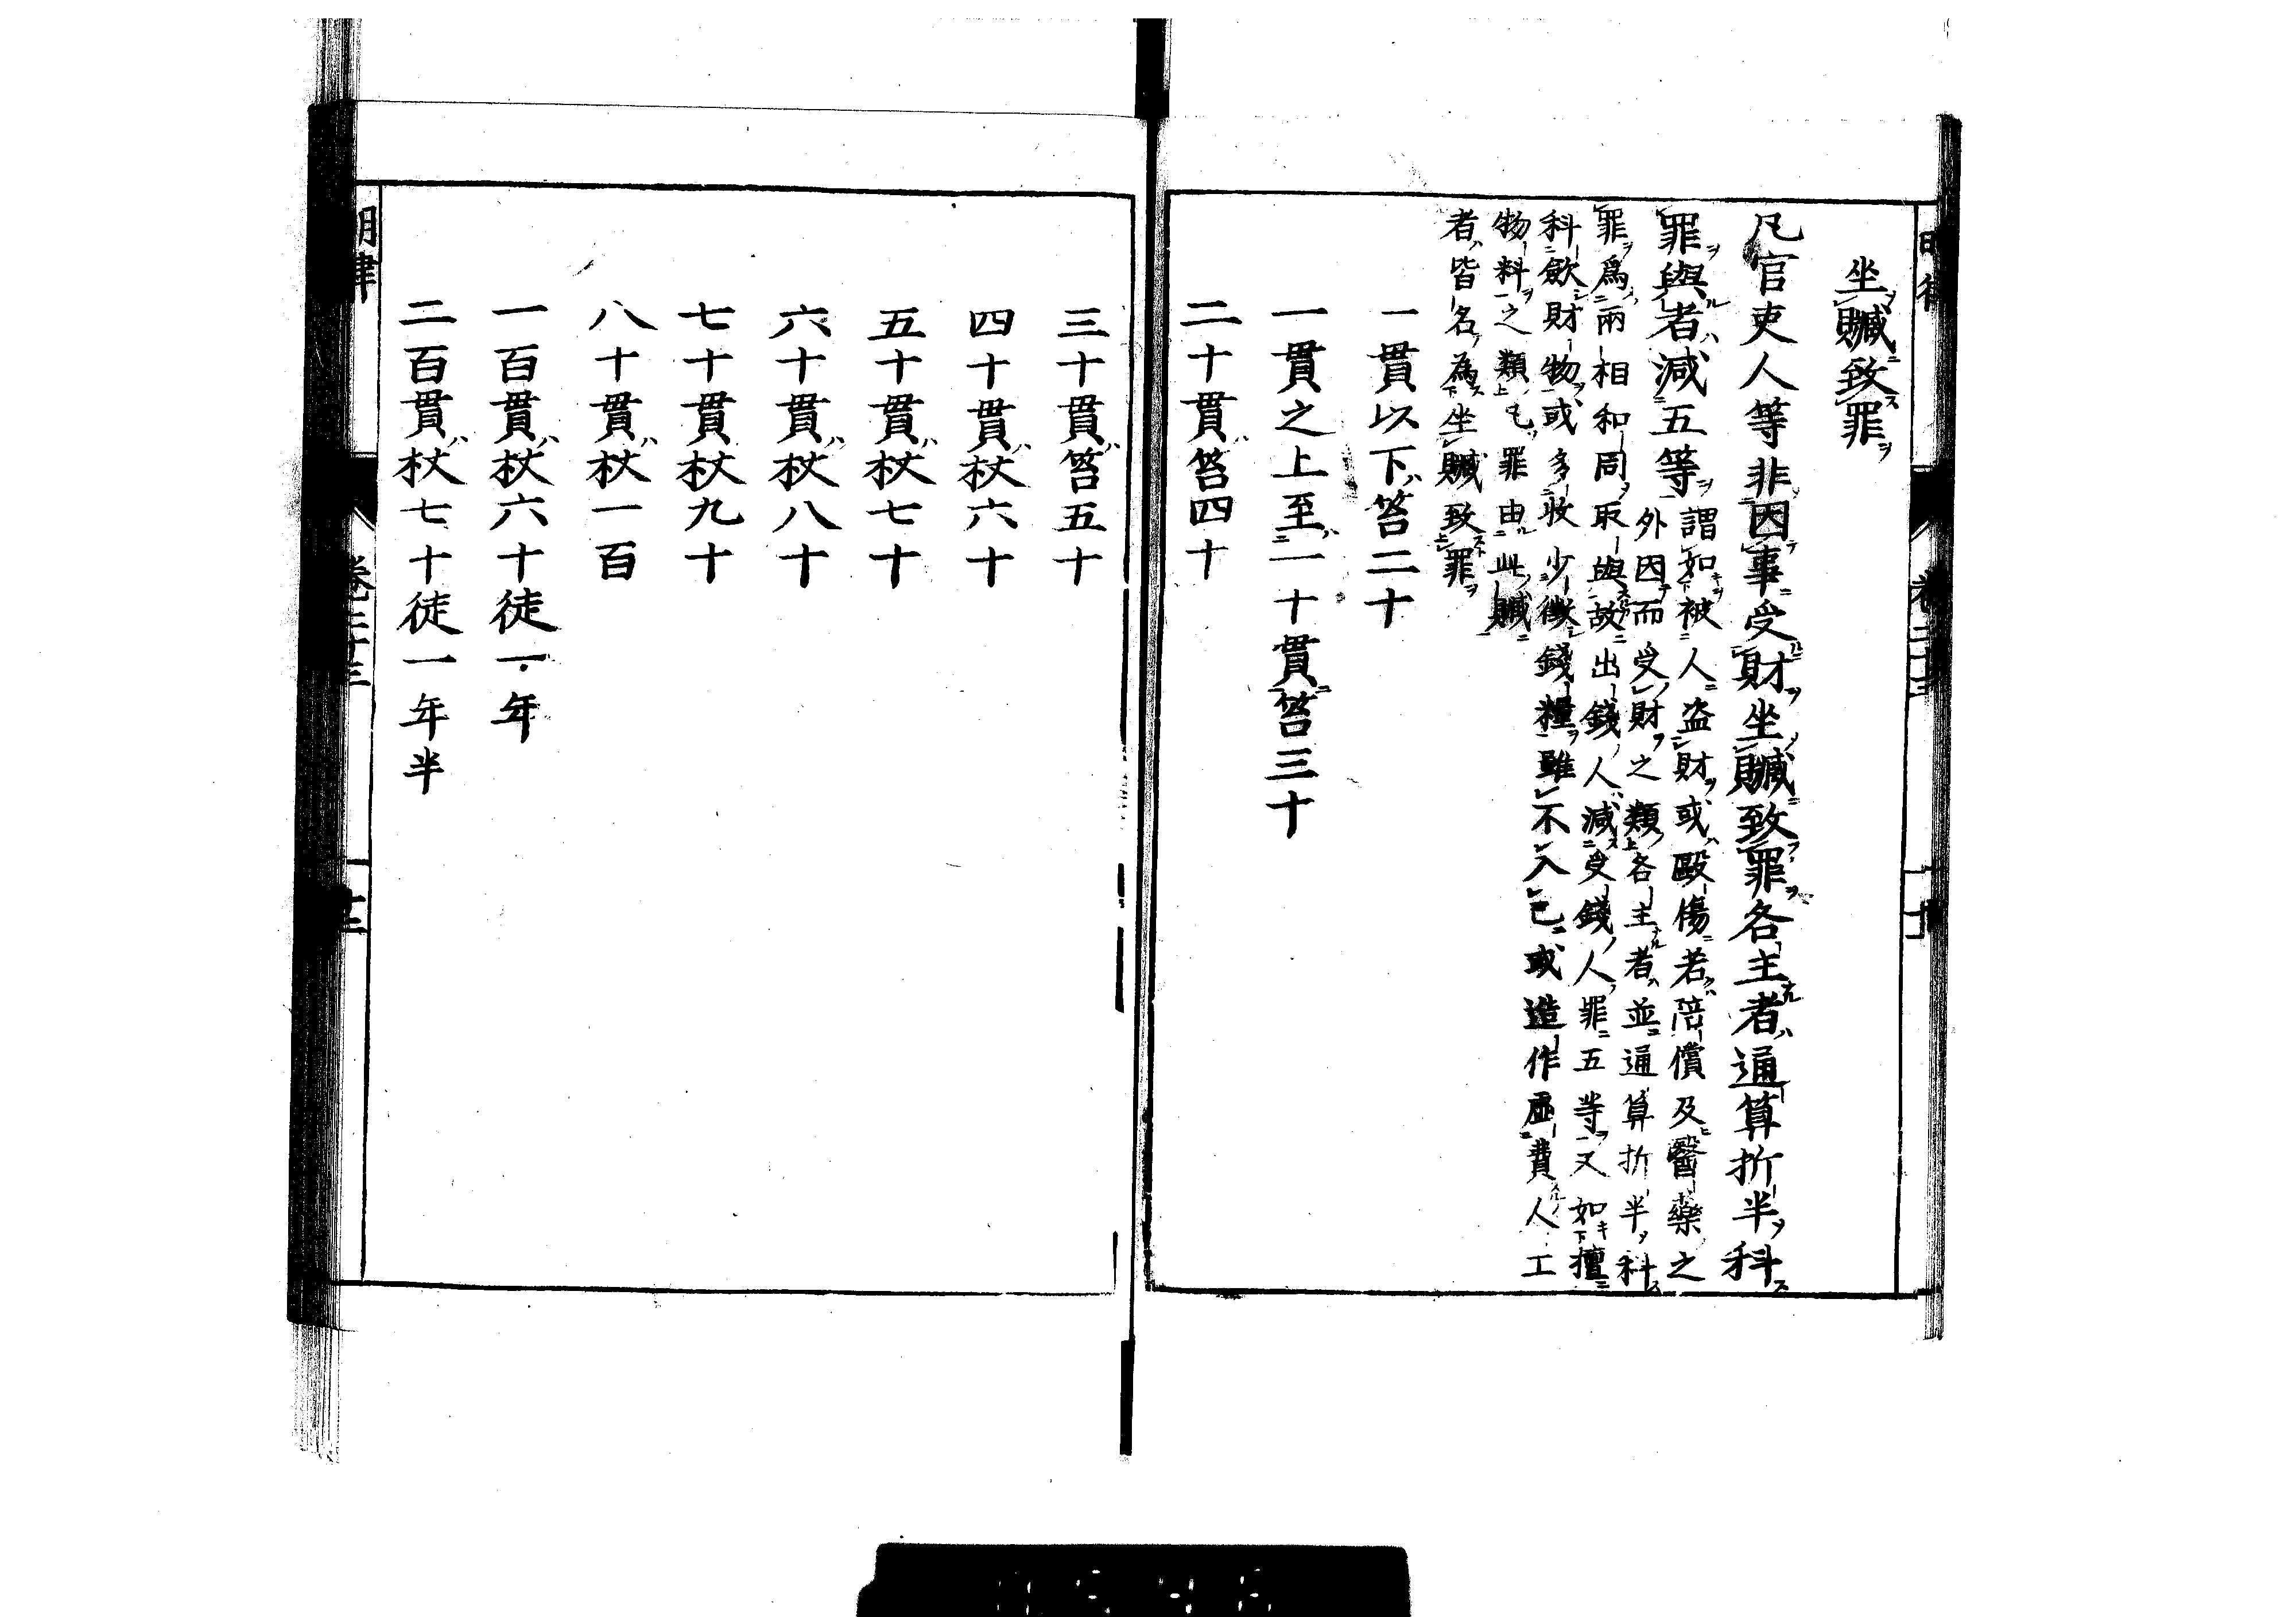 坐贓致罪
凡官吏人等非因事受財坐贓致罪各主者通算折半科
罪與者減五等
謂如被人盗財或毆傷若陪償及醫藥之
外因而受財之類各主者並通算折半科
罪爲兩相和同取與故出錢人減受錢人罪五等又如擅
科斂財物或多收少徴錢糧雖不入己或造作虚費人工
物料之類凢罪由此贓
者皆名為坐贓致罪
一貫以下笞二十
一貫之上至一十貫笞三十
二十貫笞四十
三十貫笞五十
四十貫杖六十
五十貫杖七十
六十貫杖八十
七十貫杖九十
八十貫杖一百
一百貫杖六十徒一年
二百貫杖七十徒一年半
明律